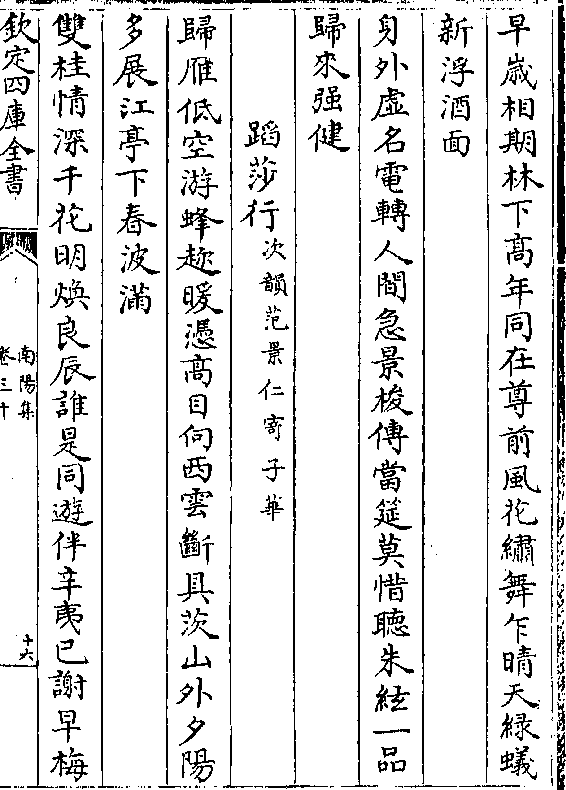 早歲相期林下高年同在尊前風花繡舞乍晴天緑蟻
新浮酒面
身外虛名電轉人間急景梭傳當筵莫惜聽朱絃一品
歸來强健
蹈莎行次韻范景仁寄子華
歸雁低空游蜂趂暖憑高目向西雲斷具茨山外夕陽
多展江亭下春波滿
雙桂情深千花明煥良辰誰是同遊伴辛夷已謝早梅
欽定四庫全書
南陽集
卷三十
十六